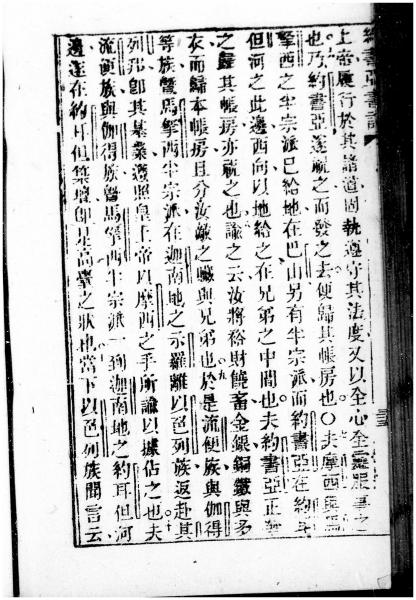 約書亞書記
上帝履行於其諸道固執遵守其法度又以全心全靈服事之
也乃約書亞遂祝之而發之去便歸其帳房也○夫摩西與馬
拏西之半宗派已給地在巴山另有半宗派而約書亞在約耳
但河之此邊西向以地給之在兄弟之中間也夫約書亞正發
之歸其帳房亦祝之也諭之云汝將裕財饒畜金銀銅鐵與多
衣而歸本帳房且分汝敵之贓與兄弟也於是流便族與伽得
等族曁馬拏西半宗派在迦南地之示羅離以色列族返赴其
列邦卽其基業遵照皇上帝以摩西之手所諭以據佔之也夫
流便族與伽得族曁馬拏西半宗派一到迦南地之約耳但河
邊遂在約耳但築壇卽是高擧之狀也當下以色列族聞言云